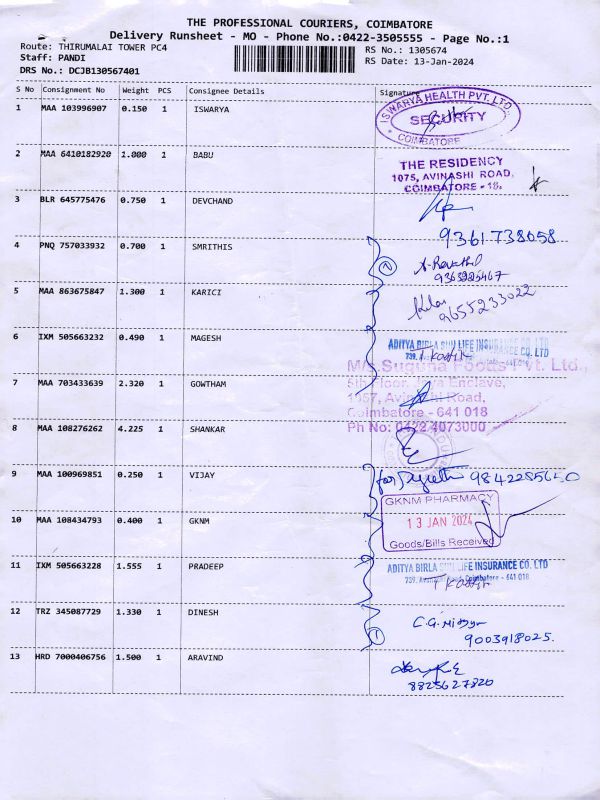 THE PROFESSIONAL COURIERS, COIMBATORE
Delivery Runsheet - MO - Phone No.:0422-3505555 - Page No.:1
Route: THIRUMALAI TOWER PC4 RS No.: 1305674
Staff: PANDI RS Date: 13-Jan-2024
DRS No.: DCJB130567401
S No Consignment No Weight PCS Consignee Details Signature
1 MAA 103996907 0.150 1 ISWARYA
ISWARYA HEALTH PVT. LTD.
SECURITY
COIMBATORE
2 MAA 6410182920 1.000 1 BABU
THE RESIDENCY
1075, AVINASHI ROAD,
COIMBATORE - 18.
3 BLR 645775476 0.750 1 DEVCHAND
9361738058
4 PNQ 757033932 0.700 1 SMRITHIS
2
5 MAA 863675847 1.300 1 KARICI
9655233022
6 IXM 505663232 0.490 1 MAGESH
ADITYA BIRLA SUN LIFE INSURANCE CO. LTD
M/s.Suguna Foods Pvt. Ltd.,
7 MAA 703433639 2.320 1 GOWTHAM
5th Floor, Jaya Enclave,
1057, Avinashi Road,
Coimbatore - 641 018
Ph No: 0422 4073000
8 MAA 108276262 4.225 1 SHANKAR
9 MAA 100969851 0.250 1 VIJAY
for
10 MAA 108434793 0.400 1 GKNM
GKNM PHARMACY
13 JAN 2024
Goods/Bills Received
11 IXM 505663228 1.555 1 PRADEEP
ADITYA BIRLA SUN LIFE INSURANCE CO. LTD
Coimbatore - 641 018
12 TRZ 345087729 1.330 1 DINESH
9003918025.
1
13 HRD 7000406756 1.500 1 ARAVIND
8825627820